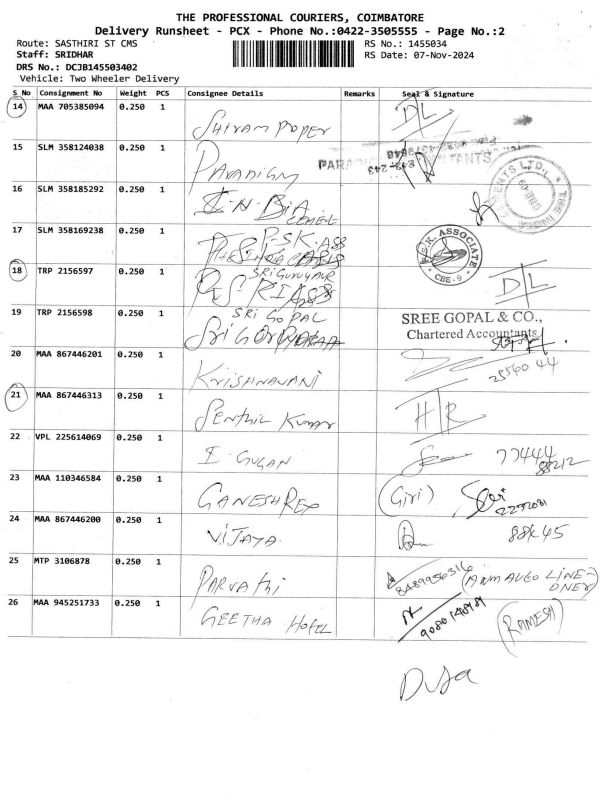 THE PROFESSIONAL COURIERS, COIMBATORE
Delivery Runsheet - PCX - Phone No.:0422-3505555 - Page No.:2
Route: SASTHIRI ST CMS RS No.: 1455034
Staff: SRIDHAR RS Date: 07-Nov-2024
DRS No.: DCJB145503402
Vehicle: Two Wheeler Delivery
S No Consignment No Weight PCS Consignee Details Remarks Seal & Signature
14 MAA 705385094 0.250 1 SHIRAM PROPER DL
15 SLM 358124038 0.250 1 PARADIGM
16 SLM 358185292 0.250 1 CEMENTS LTD.
17 SLM 358169238 0.250 1 P.S.K. ASS P.S.K. ASSOCIATE CBE - 9
18 TRP 2156597 0.250 1 DL
19 TRP 2156598 0.250 1 SRI GOPAL SREE GOPAL & CO.,
Chartered Accountants
20 MAA 867446201 0.250 1 KRISHNAVANI 2856044
21 MAA 867446313 0.250 1 SENTHIL KUMAR H/R
22 VPL 225614069 0.250 1 I. GUGAN 77444
88212
23 MAA 110346584 0.250 1 GANESH REX (Giri)
24 MAA 867446200 0.250 1 VIJAYA 88K45
25 MTP 3106878 0.250 1 PARVATHI 8489956316
26 MAA 945251733 0.250 1 GEETHA HOTEL (RAMESH)